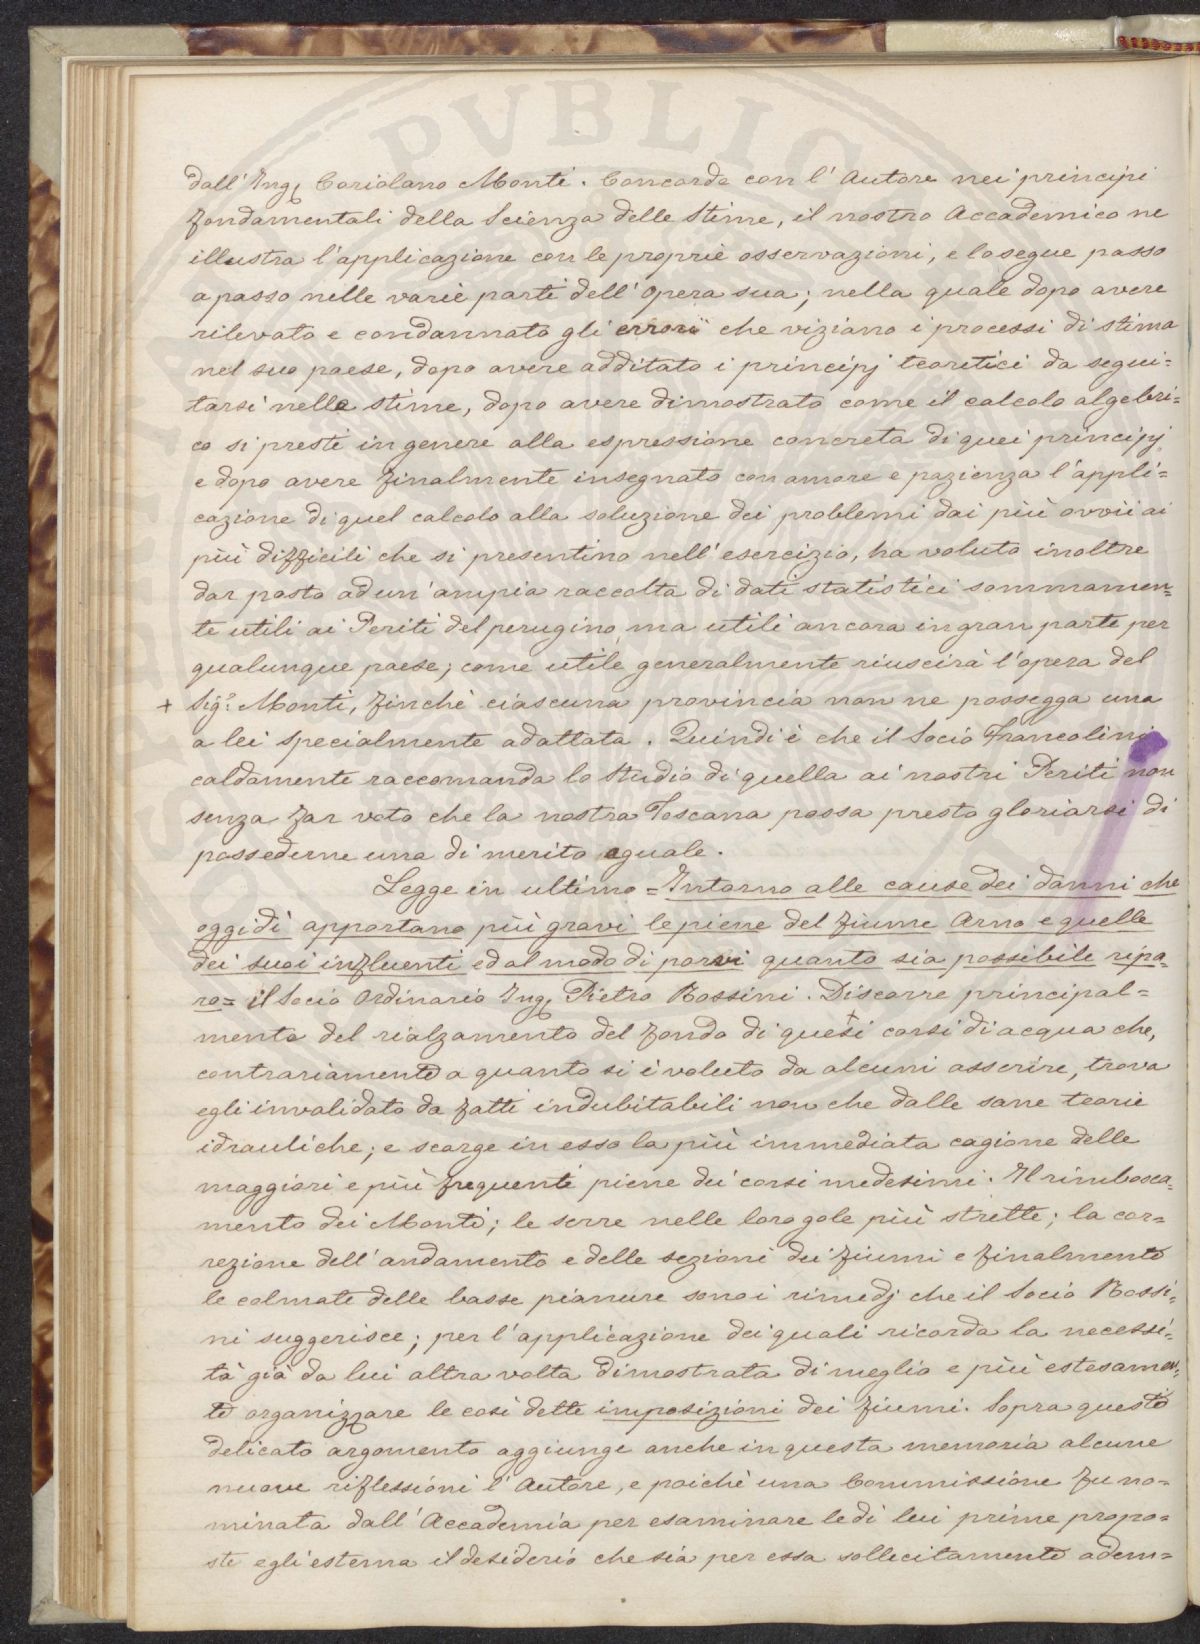 PVBLIC
dall' Ing. Coriolano Monti. Concorde con l'Autore nei principi
fondamentali della Scienza delle Stime, il nostro Accademico ne
illustra l'applicazione con le proprie osservazioni, e lo segue passo
a passo nelle varie parti dell'Opera sua; nella quale dopo avere
rilevato e condannato gli errori che viziano i processi di stima
nel suo paese, dopo avere additato i principj teoretici da segui=
tarsi nelle stime, dopo avere dimostrato come il calcolo algebri=
co si presti in genere alla espressione concreta di quei principj
e dopo avere finalmente insegnato con amore e pazienza l'appli=
cazione di quel calcolo alla soluzione dei problemi dai più ovvii ai
più difficili che si presentino nell'esercizio, ha voluto inoltre
dar posto ad un'ampia raccolta di dati statistici sommamen=
te utili ai Periti del perugino, ma utili ancora in gran parte per
qualunque paese; come utile generalmente riuscirà l'opera del
+ Sig.r Monti, finchè ciascuna provincia non ne possegga una
a lei specialmente adattata. Quindi è che il Socio Francolini
caldamente raccomanda lo Studio di quella ai nostri Periti non
senza far voto che la nostra Toscana possa presto gloriarsi di
possederne una di merito eguale.
Legge in ultimo = Intorno alle cause dei danni che
oggidì apportano più gravi le piene del fiume Arno e quelle
dei suoi influenti ed al modo di porvi quanto sia possibile ripa=
ro = il Socio Ordinario Ing. Pietro Rossini. Discorre principal=
mente del rialzamento del fondo di questi corsi di acqua che,
contrariamente a quanto si è voluto da alcuni asserire, trova
egli invalidato da fatti indubitabili non che dalle sane teorie
idrauliche; e scorge in esso la più immediata cagione delle
maggiori e più frequenti piene dei corsi medesimi. Il rimbosca=
mento dei Monti; le serre nelle loro gole più strette; la cor=
rezione dell'andamento e delle sezioni dei fiumi e finalmente
le colmate delle basse pianure sono i rimedj che il Socio Rossi=
ni suggerisce; per l'applicazione dei quali ricorda la necessi=
tà già da lui altra volta dimostrata di meglio e più estesamen=
te organizzare le così dette imposizioni dei fiumi. Sopra questo
delicato argomento aggiunge anche in questa memoria alcune
nuove riflessioni l'Autore, e poichè una Commissione fu no=
minata dall'Accademia per esaminare le di lui prime propo=
ste egli esterna il desiderio che sia per essa sollecitamente adem=